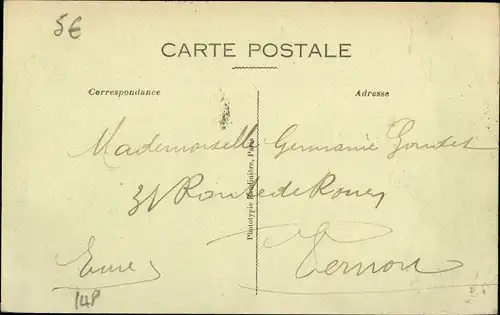 5€
CARTE POSTALE
Correspondance
Adresse
Mademoiselle Germaine Goudet
31 Route de Rouen
Vernon
Eure
Phototypie Baudinière, Paris